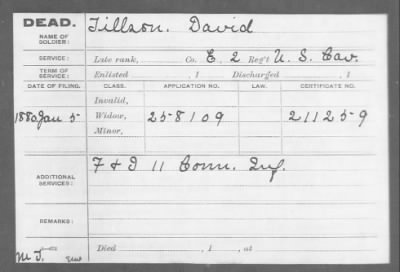 DEAD. Tillson. David
NAME OF SOLDIER:
SERVICE: Late rank, Co. E, 2 Reg't U. S. Cav.
TERM OF SERVICE: Enlisted , 1 Discharged , 1
DATE OF FILING. CLASS. APPLICATION NO. LAW. CERTIFICATE NO.
Invalid,
1880 Jan 5 Widow, 258109 211259
Minor,
ADDITIONAL SERVICES: F & I 11 Conn. Inf.
REMARKS:
Died , 1 , at